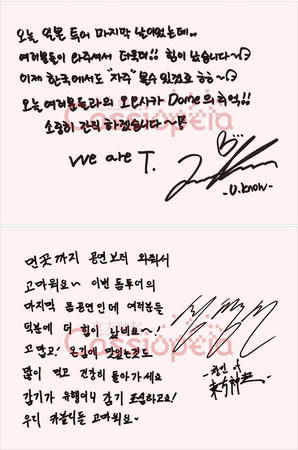 오늘 일본 투어 마지막 날이었는데..
여러분들이 와주셔서 더욱더!! 힘이 났습니다~
이제 한국에서도 "자주" 볼수 있겠죠 ㅎㅎ~
오늘 여러분들과의 오오사카 Dome의 추억!!
소중히 간직 하겠습니다~
we are T.
-U.know-
Cassiopeia
먼곳까지 공연보러 와줘서
고마워요~ 이번 돔투어의
마지막 돔공연인데 여러분들
덕분에 더 힘이 났네요~!
고맙고! 온김에 맛있는것도
많이 먹고 건강히 돌아가세요
감기가 유행이니 감기 조심하고요!
우리 카님들 고마워요~
-창민 of
東方神起-
Cassiopeia